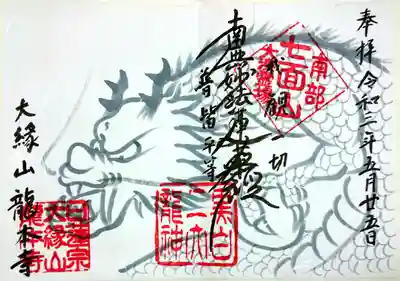 奉拝 令和三年五月廿五日
南部
七面山
我観一切
南無妙法蓮華経
普皆平等
大縁山 龍本寺
日蓮宗
大縁山
龍本寺